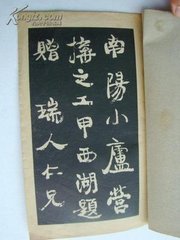 南陽小廬營
構之工甲西湖題
贈
瑞人仁兄